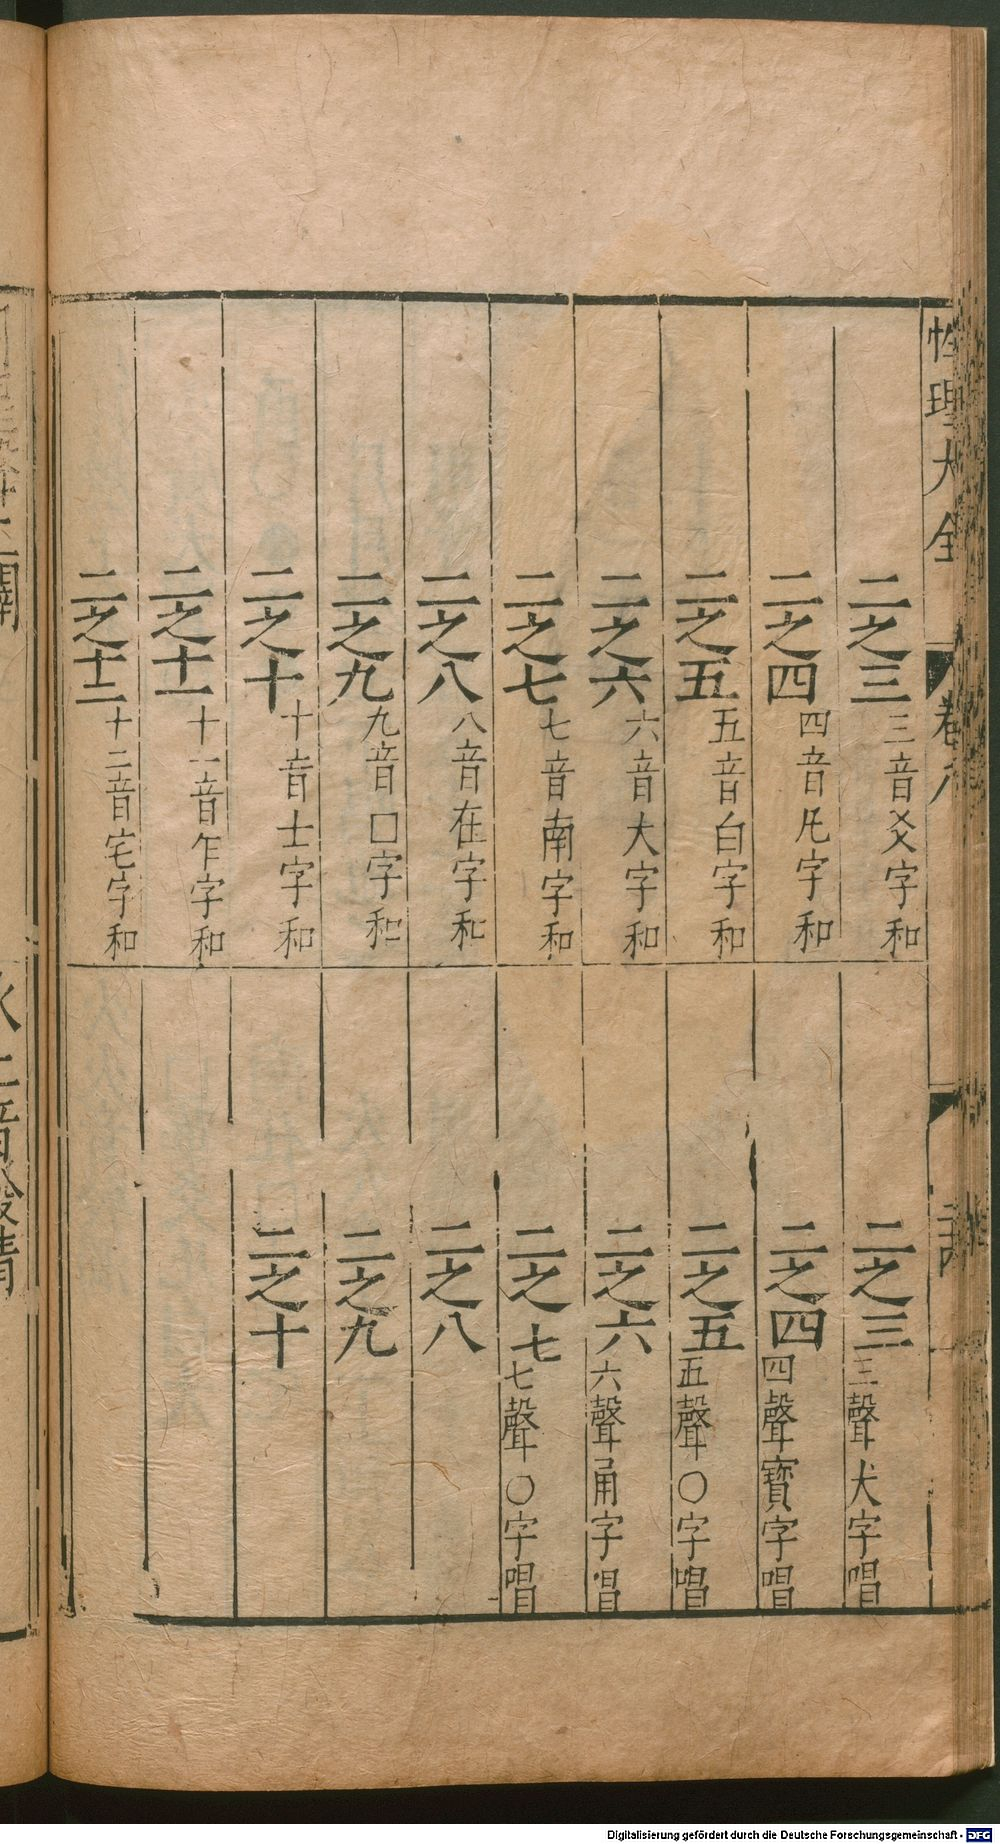 性理大全 卷八
二之三 三音爻字和
二之四 四音兂字和
二之五 五音白字和
二之六 六音大字和
二之七 七音南字和
二之八 八音在字和
二之九 九音□字和
二之十 十音士字和
二之十一 十一音乍字和
二之十二 十二音宅字和
二之三 三聲犬字唱
二之四 四聲寶字唱
二之五 五聲○字唱
二之六 六聲甬字唱
二之七 七聲○字唱
二之八
二之九
二之十
Digitalisierung gefördert durch die Deutsche Forschungsgemeinschaft - DFG